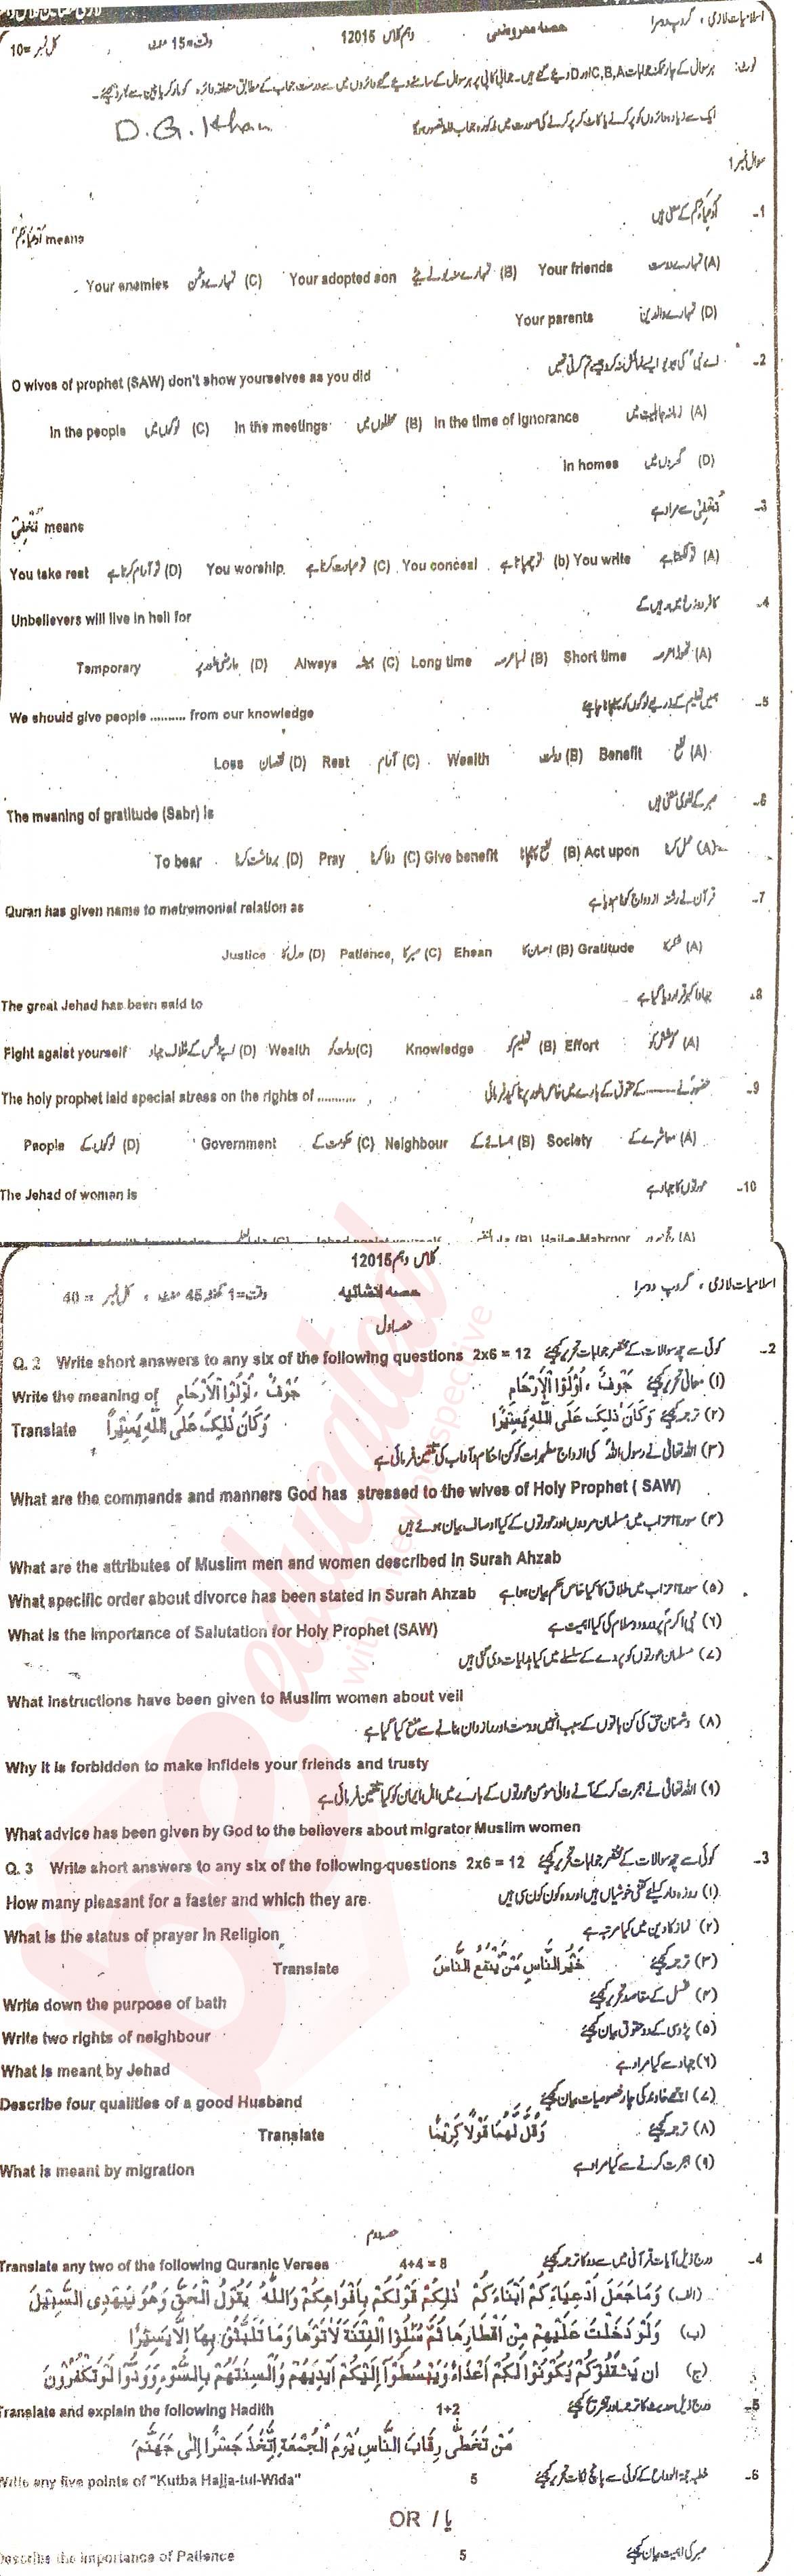 اسلامیات لازمی ، گروپ دوسرا حصہ معروضی دہم کلاس 12015 وقت=15 منٹ کل نمبر =10
نوٹ: ہر سوال کے چار ممکنہ جوابات C,B,A اور D دیے گئے ہیں۔ جوابی کاپی پر ہر سوال کے سامنے دیے گئے دائروں میں سے درست جواب کے مطابق متعلقہ دائرہ کو مارکر یا پین سے بھر دیجئے۔
ایک سے زیادہ دائروں کو پر کرنے یا کاٹ کر پر کرنے کی صورت میں مذکورہ جواب غلط تصور ہوگا
D.G.Khan
سوال نمبر 1
1- اَدْعِیَاءَکُمْ کے معنی ہیں
اَدْعِیَاءَکُمْ means
(A) تمہارے دوست Your friends (B) تمہارے منہ بولے بیٹے Your adopted son (C) تمہارے دشمن Your enemies
(D) تمہارے والدین Your parents
2- اے نبی کی بیویو ایسے بناؤ سنگھار
O wives of prophet (SAW) don't show yourselves as you did
(A) زمانہ جاہلیت میں In the time of ignorance (B) محفلوں میں In the meetings (C) لوگوں میں In the people
(D) گھروں میں in homes
3- تُخْفِیْ سے مراد ہے
تُخْفِیْ means
(A) تو لکھتا ہے You write (b) تو چھپاتا ہے You conceal (C) تو عبادت کرتا ہے You worship (D) تو آرام کرتا ہے You take rest
4- کافر دوزخ میں رہیں گے
Unbelievers will live in hell for
(A) تھوڑا عرصہ Short time (B) لمبا عرصہ Long time (C) ہمیشہ Always (D) عارضی طور پر Temporary
5- ہمیں تعلیم کے ذریعے لوگوں کو پہنچانا چاہئے
We should give people .......... from our knowledge
(A) نفع Benefit (B) دولت Wealth (C) آرام Rest (D) نقصان Loss
6- صبر کے لغوی معنی ہیں
The meaning of gratitude (Sabr) is
(A) عمل کرنا Act upon (B) نفع پہنچانا Give benefit (C) دعا کرنا Pray (D) برداشت کرنا To bear
7- قرآن نے رشتہ ازدواج کو نام دیا ہے
Quran has given name to metremonial relation as
(A) شکر کا Gratitude (B) احسان کا Ehsan (C) صبر کا Patience, (D) عدل کا Justice
8- جہاد اکبر قرار دیا گیا ہے
The great Jehad has been said to
(A) کوشش کو Effort (B) تعلیم کو Knowledge (C) دولت کو Wealth (D) اپنے نفس کے خلاف جہاد Fight agaist yourself
9- حضورؐ نے ------ کے حقوق کے بارے میں خاص طور پر تاکید فرمائی
The holy prophet laid special stress on the rights of ...........
(A) معاشرے کے Society (B) ہمسائے کے Neighbour (C) حکومت کے Government (D) لوگوں کے People
10- عورتوں کا جہاد ہے
The Jehad of woman is
(A) حج مبرور Hajj-e-Mabroor (B) جہاد بالنفس Jehad agaist yourself (C)
کلاس دہم 12015
اسلامیات لازمی ، گروپ دوسرا حصہ انشائیہ وقت=1 گھنٹہ 45 منٹ ، کل نمبر = 40
حصہ اول
2- کوئی سے چھ سوالات کے مختصر جوابات تحریر کیجئے Q. 2 Write short answers to any six of the following questions 2x6 = 12
(۱) معانی تحریر کیجئے جَوْفٌ ، اُولُوا الْاَرْحَامِ Write the meaning of جَوْفٌ ، اُولُوا الْاَرْحَامِ
(۲) ترجمہ کیجئے وَكَانَ ذٰلِكَ عَلَى اللّٰهِ يَسِيْرًا Translate وَكَانَ ذٰلِكَ عَلَى اللّٰهِ يَسِيْرًا
(۳) اللہ تعالیٰ نے رسول اللہ کی ازواج مطہرات کو کن احکام و آداب کی تلقین فرمائی ہے
What are the commands and manners God has stressed to the wives of Holy Prophet ( SAW)
(۴) سورۃ احزاب میں مسلمان مردوں اور عورتوں کے کیا اوصاف بیان ہوئے ہیں
What are the attributes of Muslim men and women described in Surah Ahzab
(۵) سورۃ احزاب میں طلاق کا کیا خاص حکم بیان ہوا ہے What specific order about divorce has been stated in Surah Ahzab
(۶) نبی اکرم پر درود و سلام کی کیا اہمیت ہے What is the importance of Salutation for Holy Prophet (SAW)
(۷) مسلمان عورتوں کو پردے کے سلسلے میں کیا ہدایات دی گئی ہیں
What instructions have been given to Muslim women about veil
(۸) دشمنان حق کی کن باتوں کے سبب انہیں دوست اور رازدان بنانے سے منع کیا گیا ہے
Why it is forbidden to make infidels your friends and trusty
(۹) اللہ تعالیٰ نے ہجرت کر کے آنے والی مومن عورتوں کے بارے میں اہل ایمان کو کیا تلقین فرمائی ہے
What advice has been given by God to the believers about migrator Muslim women
3- کوئی سے چھ سوالات کے مختصر جوابات تحریر کیجئے Q. 3 Write short answers to any six of the following questions 2x6 = 12
(۱) روزہ دار کیلئے کتنی خوشیاں ہیں اور وہ کون کون سی ہیں How many pleasant for a faster and which they are.
(۲) نماز کا دین میں کیا مرتبہ ہے What is the status of prayer in Religion
(۳) ترجمہ کیجئے خَيْرُ النَّاسِ مَنْ يَّنْفَعُ النَّاسَ Translate
(۴) غسل کے مقاصد تحریر کیجئے Write down the purpose of bath
(۵) پڑوسی کے دو حقوق بیان کیجئے Write two rights of neighbour
(۶) جہاد سے کیا مراد ہے What is meant by Jehad
(۷) اچھے خاوند کی چار خصوصیات بیان کیجئے Describe four qualities of a good Husband
(۸) ترجمہ کیجئے وَقُلْ لَّهُمَا قَوْلًا كَرِيْمًا Translate
(۹) ہجرت کرنے سے کیا مراد ہے What is meant by migration
حصہ دوم
4- درج ذیل آیات قرآنی میں سے دو کا ترجمہ کیجئے 4+4 = 8 Translate any two of the following Quranic Verses
(الف) وَمَا جَعَلَ اَدْعِيَاءَكُمْ اَبْنَاءَكُمْ ذٰلِكُمْ قَوْلُكُمْ بِاَفْوَاهِكُمْ وَاللّٰهُ يَقُوْلُ الْحَقَّ وَهُوَ يَهْدِى السَّبِيْلَ
(ب) وَلَوْ دُخِلَتْ عَلَيْهِمْ مِّنْ اَقْطَارِهَا ثُمَّ سُئِلُوا الْفِتْنَةَ لَاٰتَوْهَا وَمَا تَلَبَّثُوْا بِهَا اِلَّا يَسِيْرًا
(ج) اِنْ يَّثْقَفُوْكُمْ يَكُوْنُوْا لَكُمْ اَعْدَاءً وَّيَبْسُطُوْا اِلَيْكُمْ اَيْدِيَهُمْ وَاَلْسِنَتَهُمْ بِالسُّوْءِ وَوَدُّوْا لَوْ تَكْفُرُوْنَ
5- درج ذیل حدیث کا ترجمہ اور تشریح کیجئے 1+2 Translate and explain the following Hadith
مَنْ تَخَطّٰى رِقَابَ النَّاسِ يَوْمَ الْجُمُعَةِ اِتَّخَذَ جَسْرًا اِلٰى جَهَنَّمَ
6- خطبہ حجۃ الوداع کے کوئی سے پانچ نکات تحریر کیجئے 5 Write any five points of "Kutba Hajja-tul-Wida"
OR / یا
صبر کی اہمیت بیان کیجئے 5 Describe the importance of Patience
be educated
with new perspective